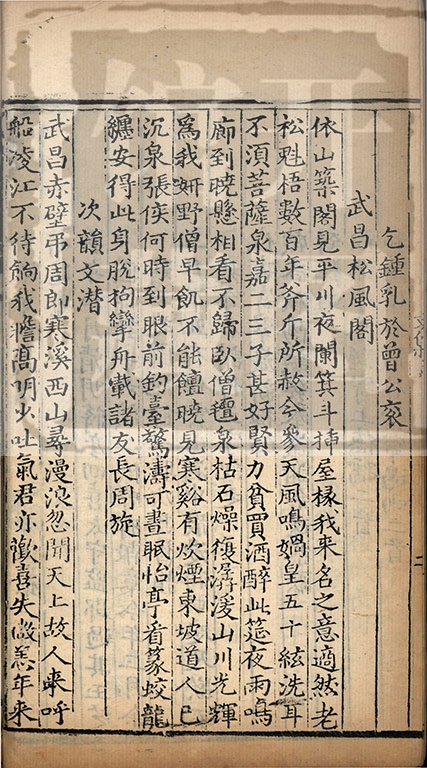 乞鍾乳於曾公衮
武昌松風閣
依山築閣見平川夜闌箕斗挿屋椽我来名之意適然老
松魁梧數百年斧斤所赦今參天風鳴媧皇五十絃洗耳
不湏菩薩泉嘉二三子甚好賢力貧買酒醉此筵夜雨鳴
廊到暁懸相看不歸臥僧氊泉枯石燥復潺湲山川光輝
爲我妍野僧早飢不能饘曉見寒谿有炊煙東坡道人已
沉泉張侯何時到眼前釣臺驚濤可晝眠怡亭看篆蛟龍
纏安得此身脫拘攣舟載諸友長周旋
次韻文潛
武昌赤壁弔周郎寒溪西山尋漫浪忽聞天上故人来呼
船凌江不待餉我瞻髙明少吐氣君亦歡喜失微恙年来